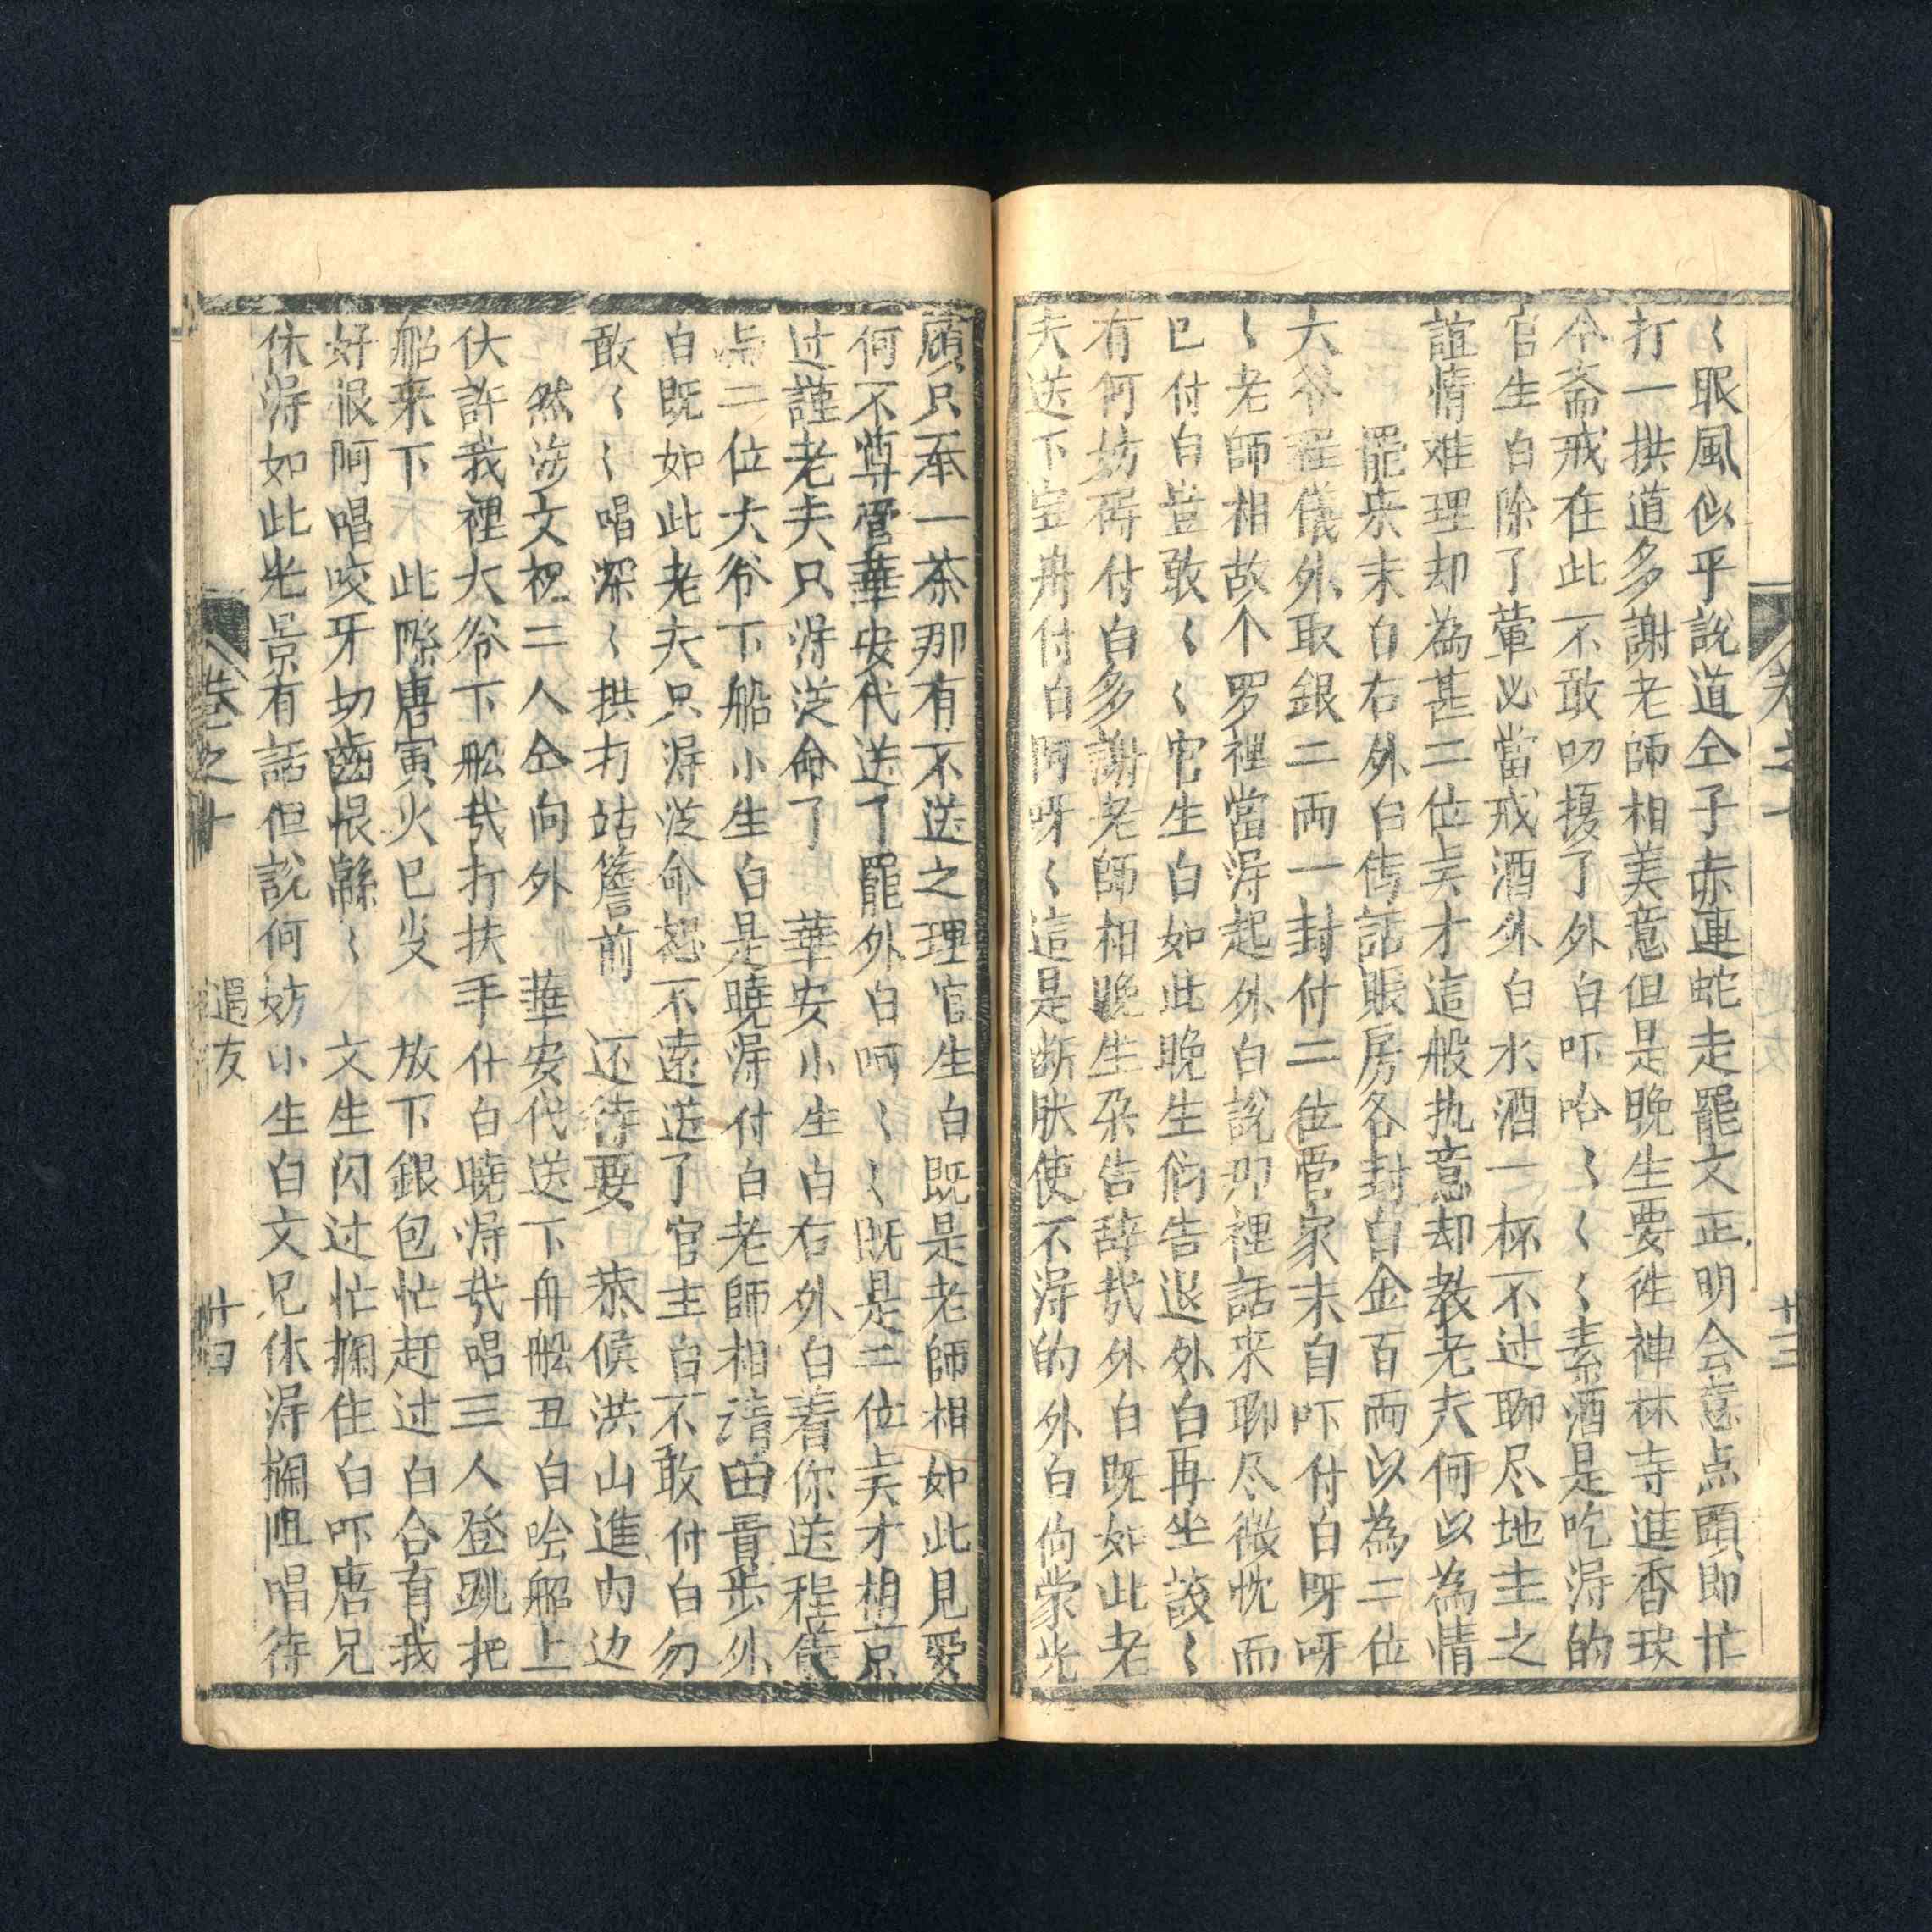 卷之十
廿三
〻眼風似乎說道仝子赤連蛇走罷文正明会意点頭即忙
打一拱道多謝老師相美意但是晚生要徃神林寺進香
今斋戒在此不敢叨擾了外白吓哈〻〻〻素酒是吃淂的
官生白除了葷必當戒酒外白水酒一杯不过聊尽地主之
誼情难理却為甚二位矣才這般执意却教老夫何以為情
罷来末白右外白传話賬房各封白金百両以為二位
大爷程儀外取銀二両一封付二位管家末自吓付白呀呀
〻老師相故个罗裡當淂起外白說那裡話来聊尽微忱而
已付白豈敢〻〻官生白如此晚生们告退外白再坐談〻
有何妨碍付白多謝老師相晚生朶告辞哉外白既如此老
夫送下宝舟付白阿呀〻這是断肰使不淂的外白尙蒙光
顧只奉一茶那有不送之理官生白既是老師相如此見爱
何不尊管華安代送了罷外白呵〻〻既是二位矣才相京
过謹老夫只淂従命了　華安小生白右外白着你送程儀
二位大爷下船小生白是曉淂付白老師相請留步外
白既如此老夫只淂従命恕不逺送了官主白不敢付白勿
敢〻〻唱深〻拱打姑簷前　还待要　恭候洪山進内边
然涉文祝二人仝向外　華安代送下舟舩丑白唅船上
伏許我裡大爷下舩哉打扶手什白曉淂哉唱三人登跳把
船来下　此際唐寅火已发　放下銀包忙赶过白合有我
好狠阿唱咬牙切齒恨緜〻　文生闪过忙攔住白吓唐兄
休淂如此光景有話但說何妨小生白文兄休淂攔阻唱待
卷之十
遇友
廿四